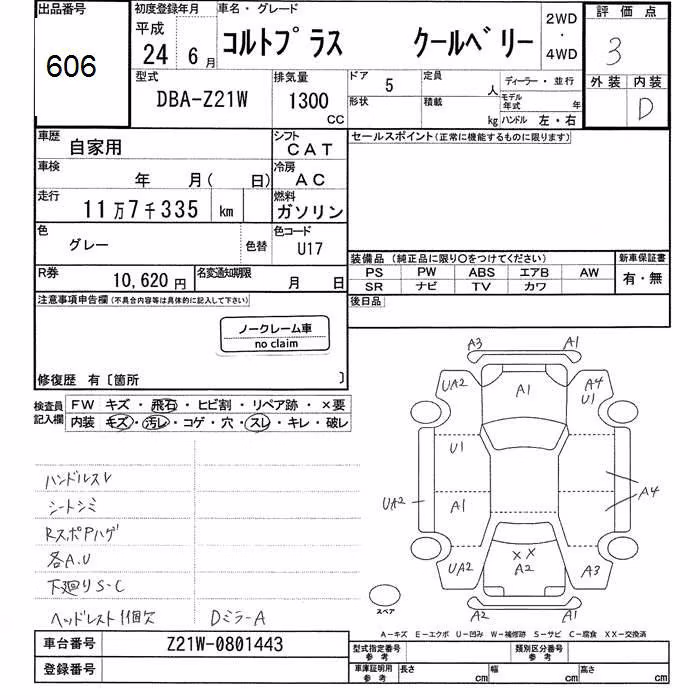 出品番号 初度登録年月 車名・グレード 2WD・4WD 評価点
606 平成24年6月 コルトプラス クールベリー 3
外装 内装
D
型式 排気量 ドア 定員 ディーラー・並行
DBA-Z21W 1300CC 5 人 モデル年式 年
形状 積載 kg ハンドル 左・右
車歴 シフト セールスポイント(正常に機能するものに限ります)
自家用 CAT
車検 冷房
年 月( 日) AC
走行 燃料
11万7千335 km ガソリン
色 色コード
グレー 色替 U17
装備品(純正品に限り○をつけてください) 新車保証書
PS PW ABS エアB AW 有・無
SR ナビ TV カワ
R券 10,620円 名変通知期限 月 日
後日品
注意事項申告欄(不具合内容等は具体的に記入して下さい)
ノークレーム車
no claim
修復歴 有〔箇所 〕
検査員記入欄 FW キズ・飛石・ヒビ割・リペア跡・×要
内装 キズ・汚レ・コゲ・穴・スレ・キレ・破レ
ハンドルスレ
シートシミ
RスポPハゲ
各A.U
下廻りS-C
ヘッドレスト1個欠 DミラーA
A3 A1
UA2 A1 A4
U1
U1
UA2 A1 A4
UA2 ×× A3
A2
A2 A1
スペア
A-キズ E-エクボ U-凹み W-補修跡 S-サビ C-腐食 XX-交換済
車台番号 Z21W-0801443 型式指定番号 参考 類別区分番号 参考
登録番号 車庫証明用 参考 長さ cm 幅 cm 高さ cm